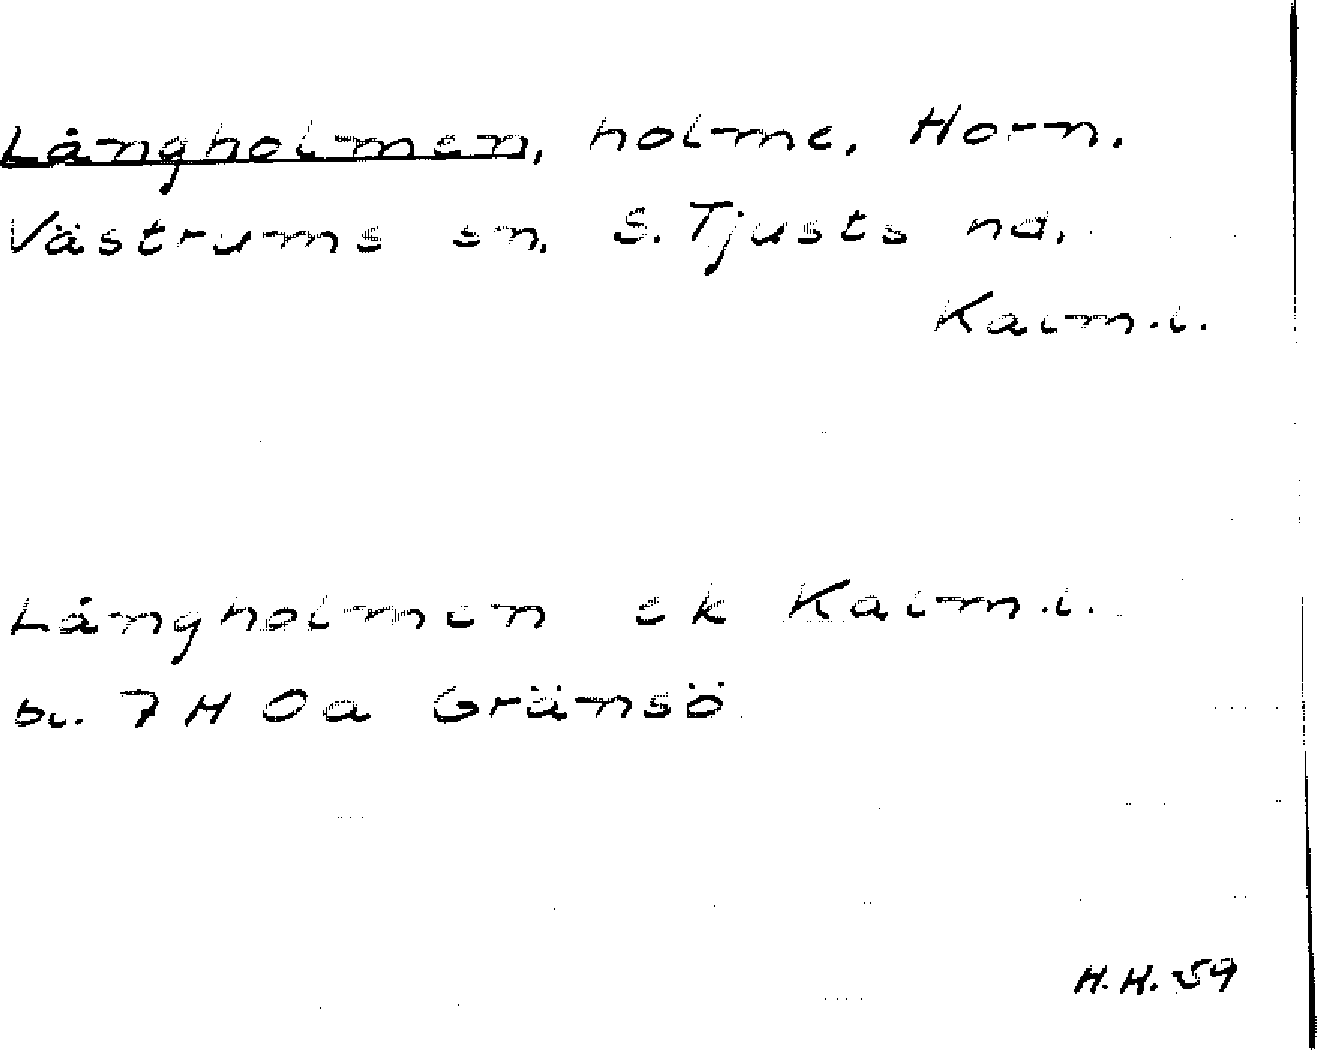 Långholmen, holme, Horn.
Västrums sn. S. Tjusts hd.
Kalm.l.
Långholmen ek Kalm.l.
bl. 7 H 0a Gränsö
H.H. 59